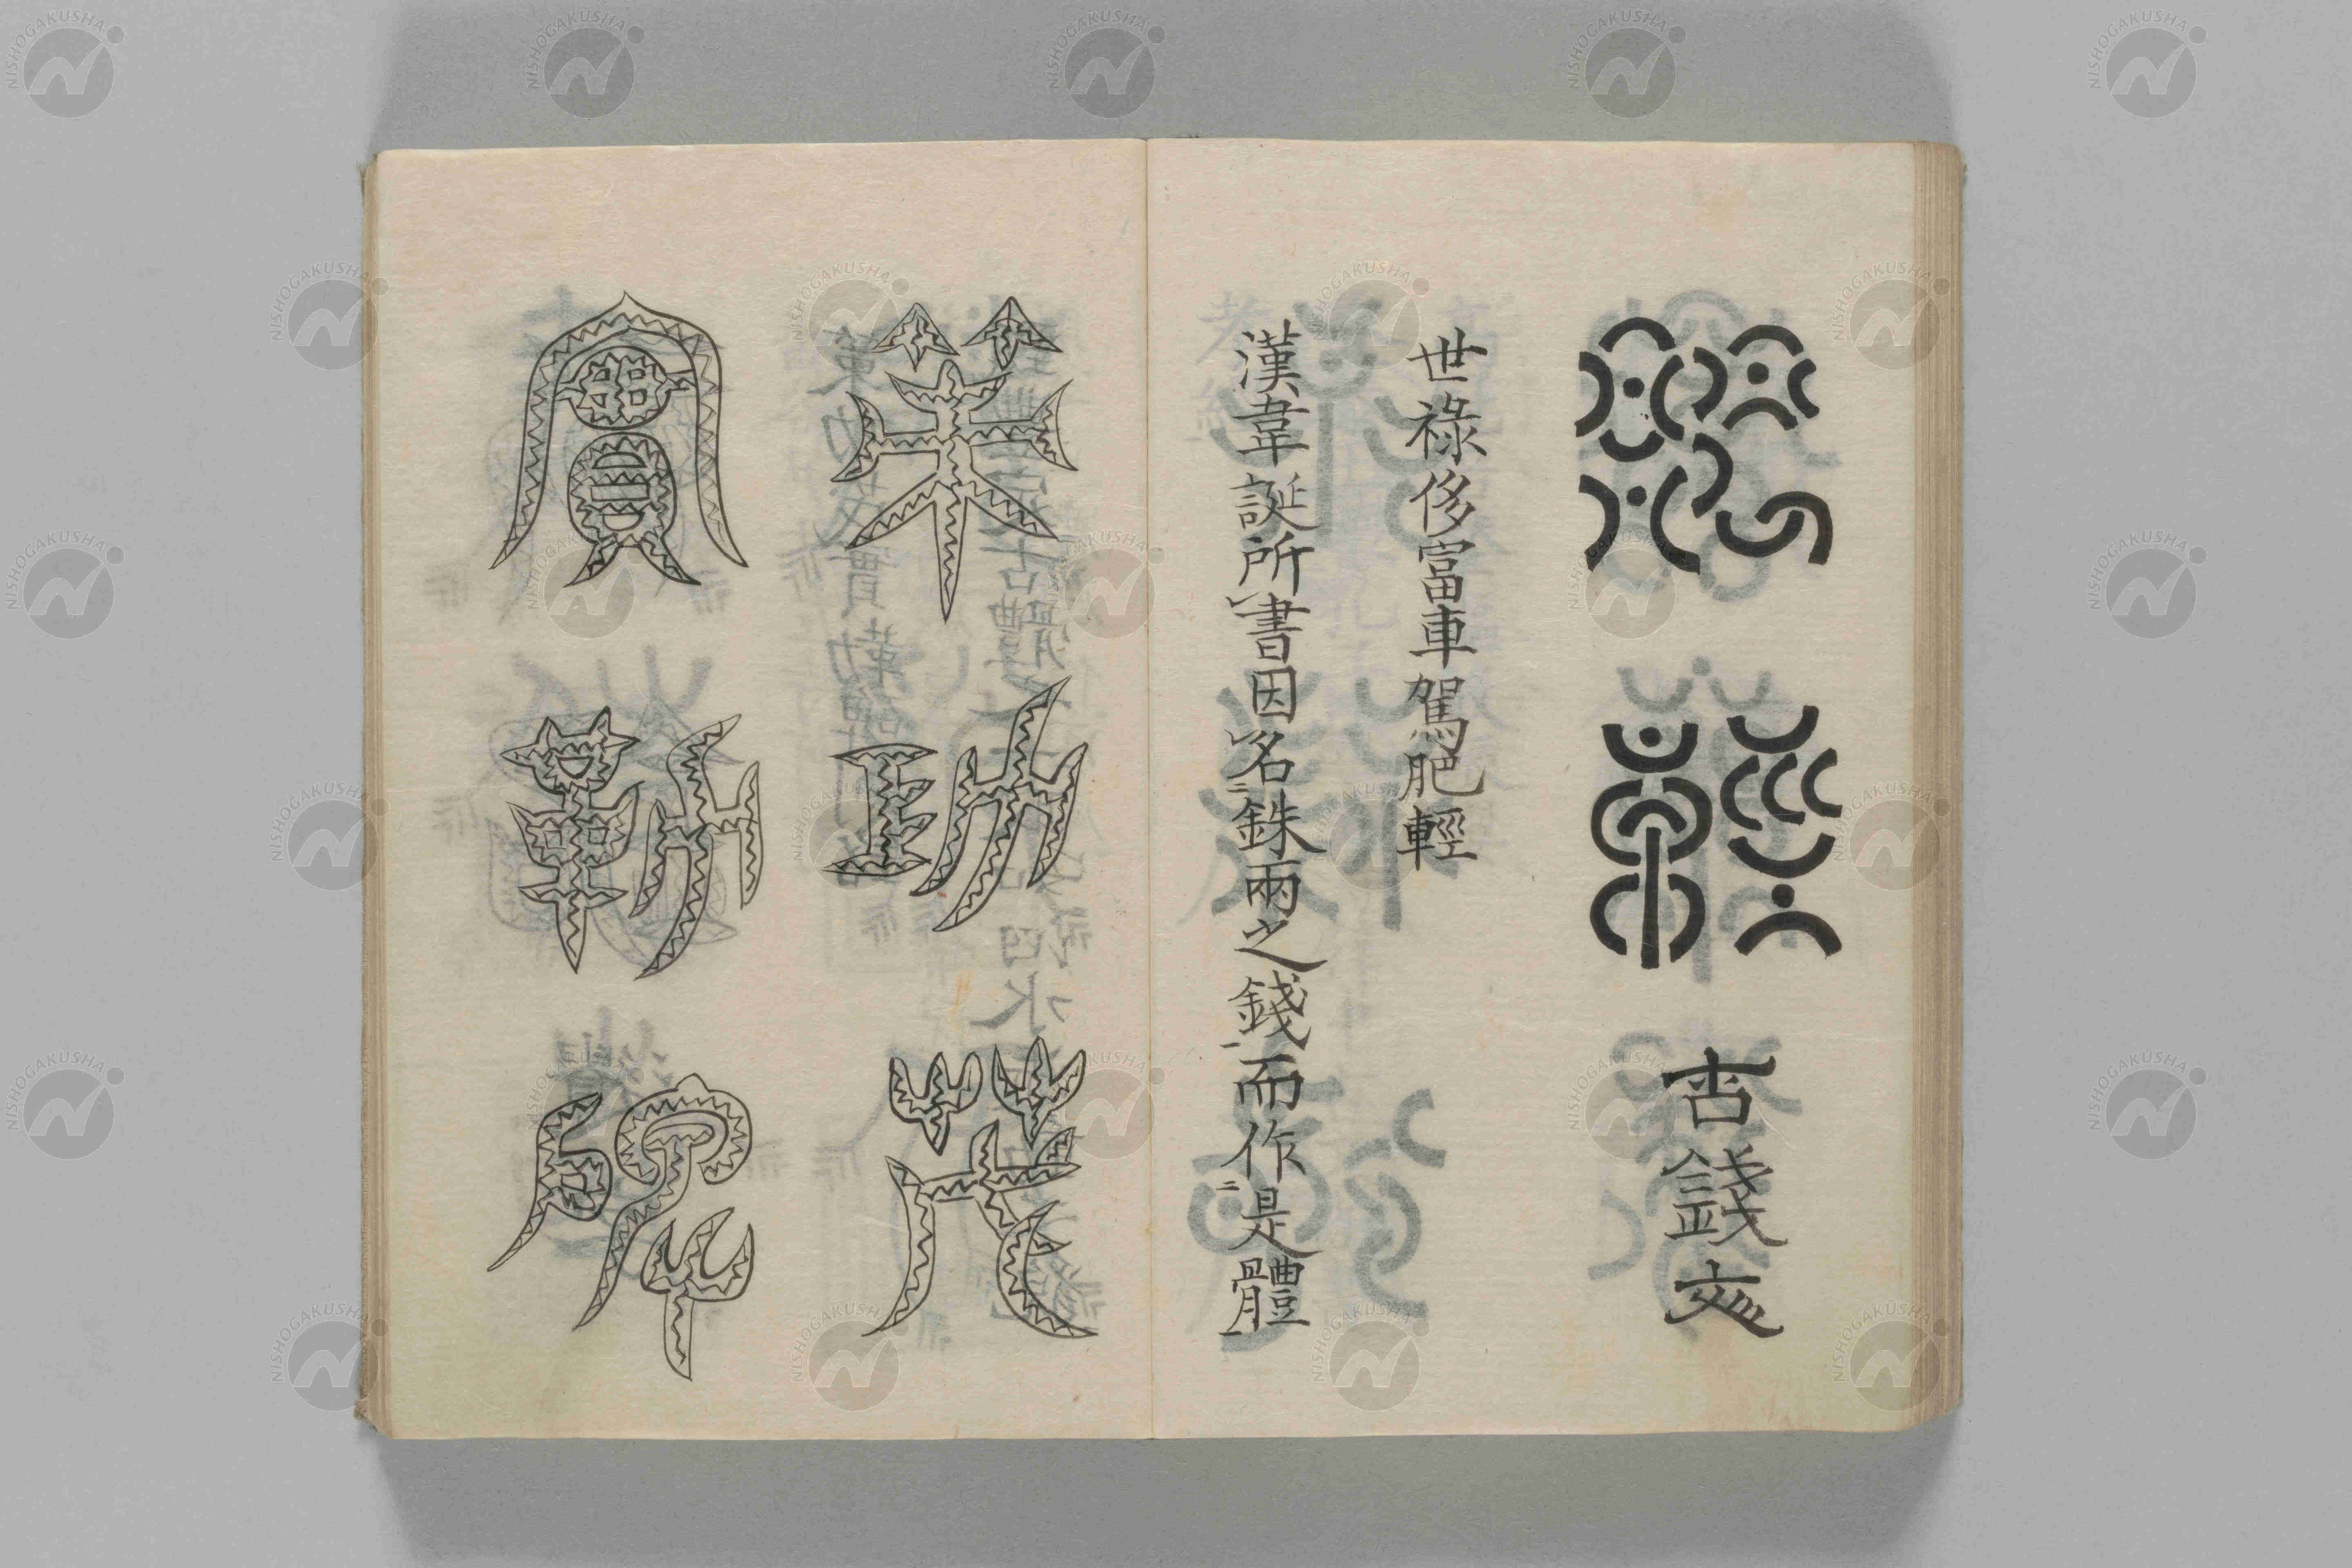 肥輕 錢文
世祿侈富車駕肥輕
漢韋誕所書因名銖兩之錢而作是體
策功茂
實勒碑
NISHOGAKUSHA